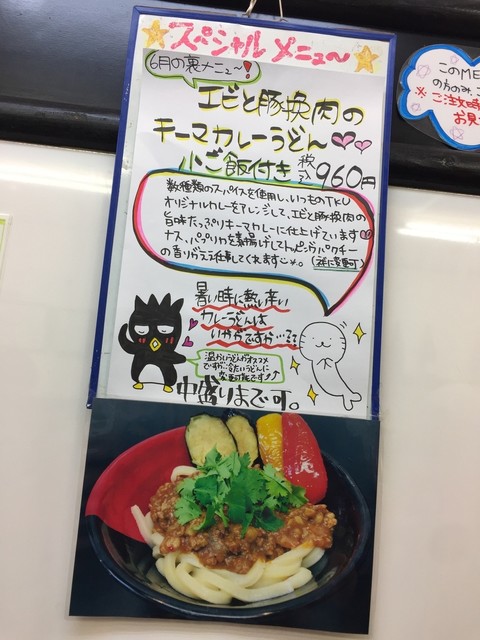 スペシャルメニュ〜
6月の裏メニュー〜!
エビと豚挽肉の
キーマカレーうどん
小ご飯付き 税込960円
数種類のスパイスを使用し、いつものTKU
オリジナルカレーをアレンジして、エビと豚挽肉の
旨味たっぷりキーマカレーに仕上げています
ナス、パプリカを素揚げしてトッピング。パクチー
の香りが
してくれます
暑い時に熱い辛い
カレーうどんは
いかがですか…??
温かいうどんがオススメ
ですが…冷たいうどんに
変更可能です↑
中盛りまで可。
このME
の方のみ、こ
※ご注文時
お見